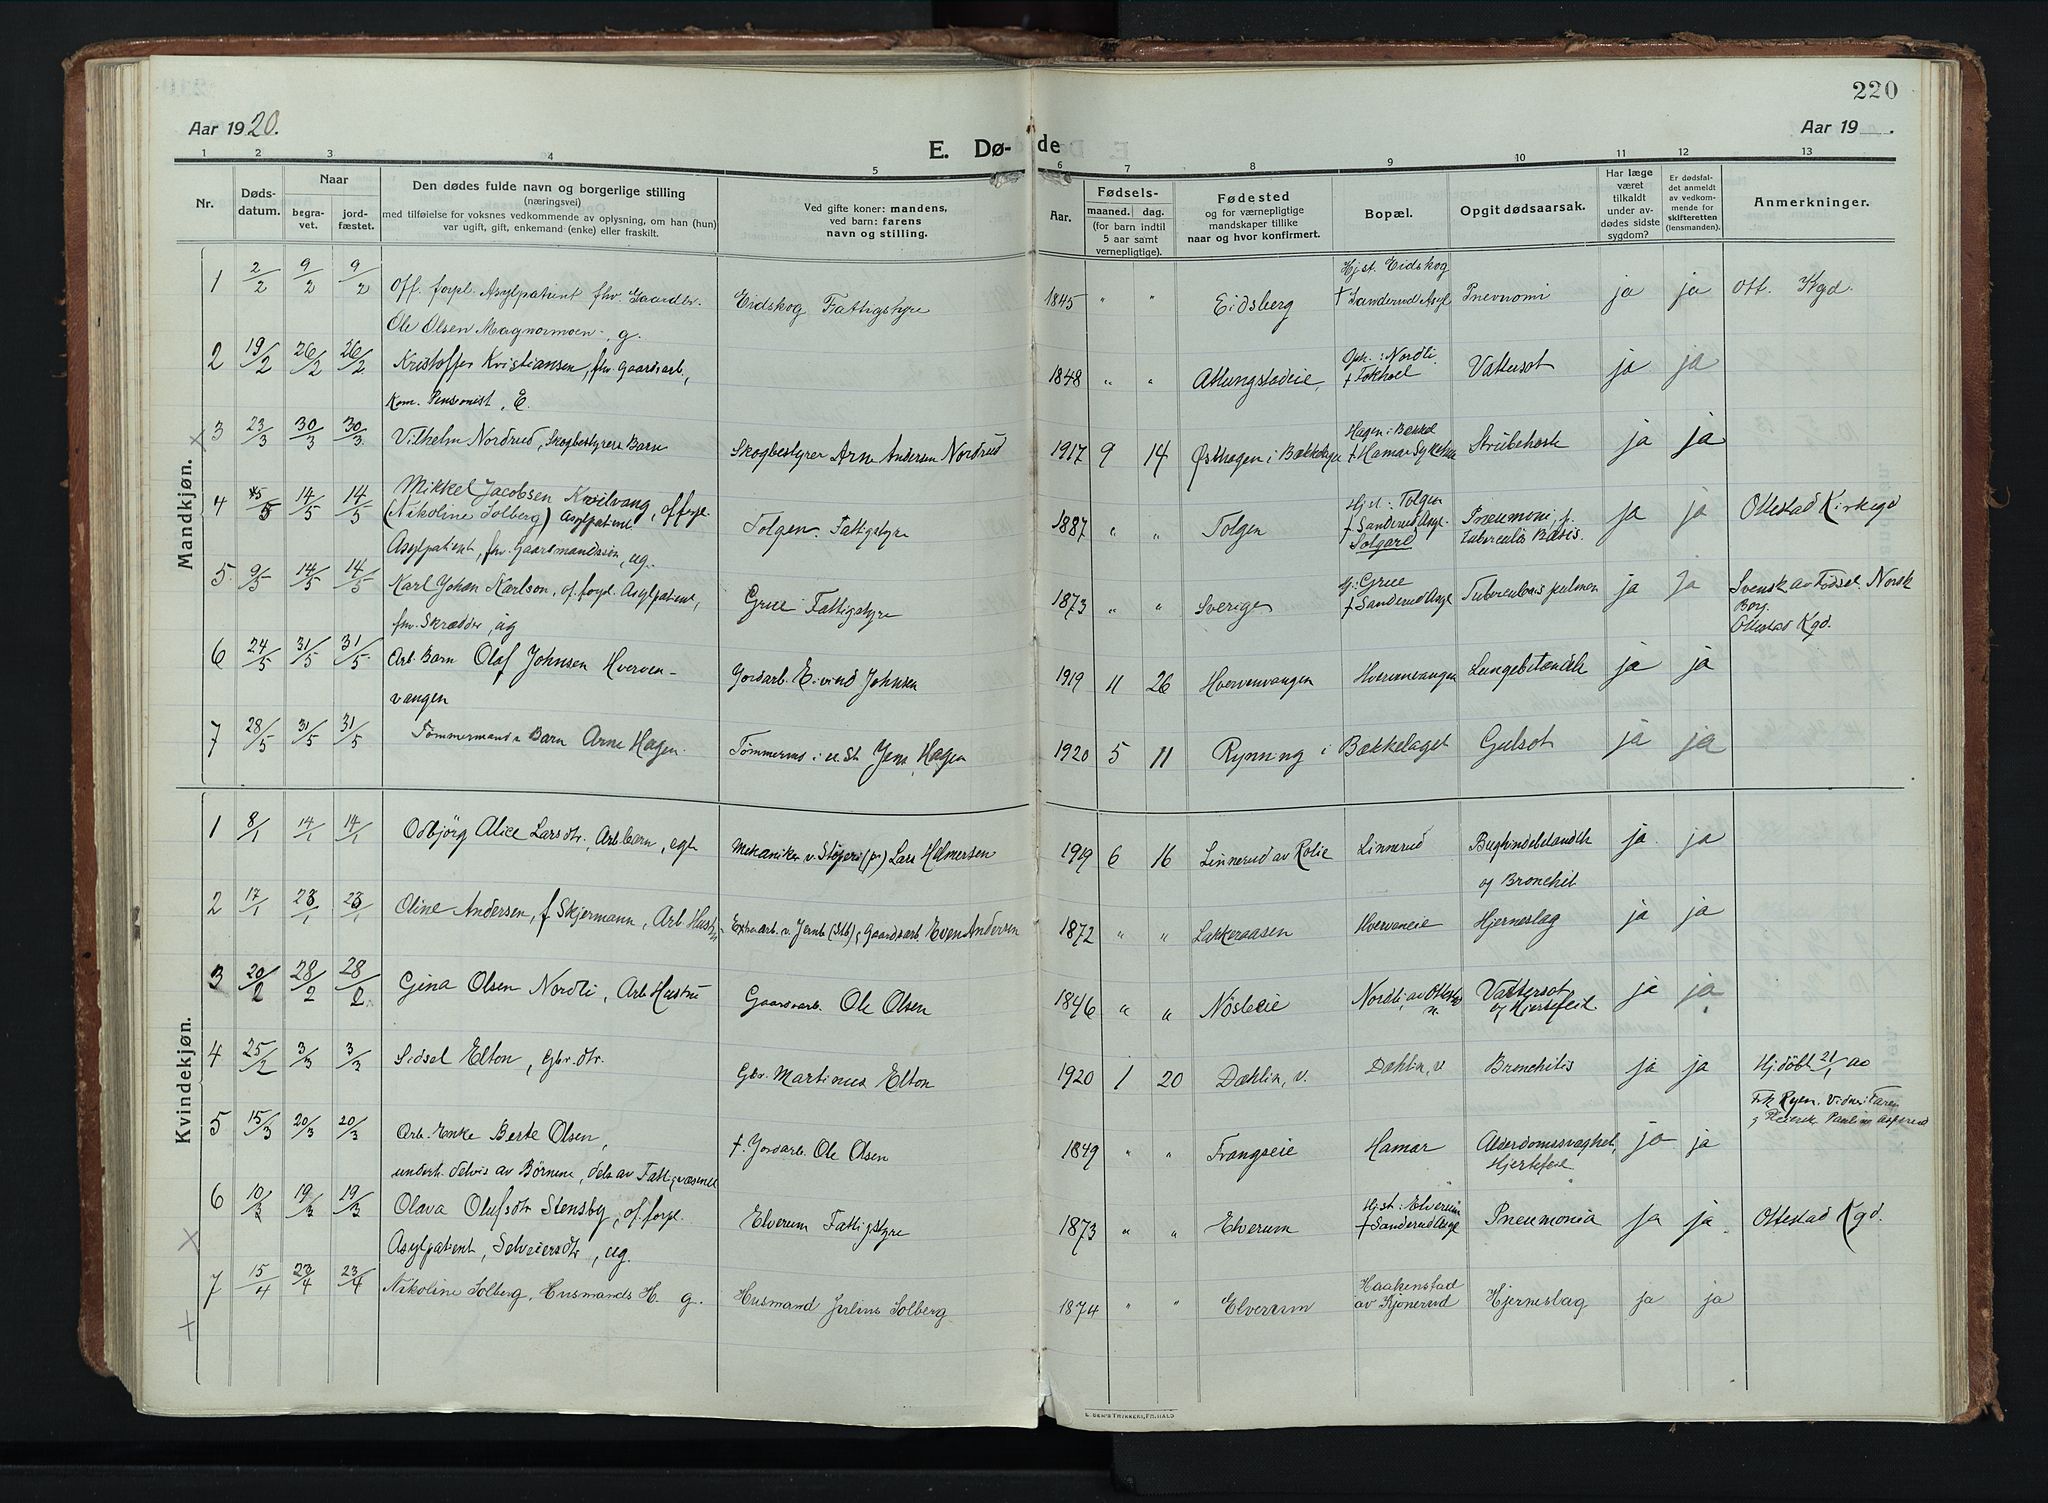 220
Aar 1920.
Aar 19 .
E. Dø- de
1 2 3 4 5 6 7 8 9 10 11 12 13
Nr.
Døds-
datum.
Naar
begra-
vet.
jord-
fæstet.
Den dødes fulde navn og borgerlige stilling
(næringsvei)
med tilføielse for voksnes vedkommende av oplysning, om han (hun)
var ugift, gift, enkemand (enke) eller fraskilt.
Ved gifte koner: mandens,
ved barn: farens
navn og stilling.
Aar.
Fødsels-
maaned. dag.
(for barn indtil
5 aar samt
vernepligtige).
Fødested
og for værnepligtige
mandskaper tillike
naar og hvor konfirmert.
Bopæl.
Opgit dødsaarsak.
Har læge
været
tilkaldt
under av-
dødes sidste
sygdom?
Er dødsfal-
det anmeldt
av vedkom-
mende for
skifteretten
(lensmanden).
Anmerkninger.
Mandkjøn.
1 2/2 9/2 9/2 Off. forpl. Asylpatient fhv. Gaardbr. Eidskog Fattigstyre 1845 " " Eidsberg Hjst. Eidskog
† Sanderud Asyl Pnevmoni ja ja Ott. Kgd.
Ole Olsen Magnormoen, g.
2 19/2 26/2 26/2 Kristoffer Kristiansen, fhv. gaardsarb., 1848 " " Attungstadeie, Oph.: Nordli
† Tokhoel Vattersot ja ja
Kom. Pensionist, E.
3 23/3 30/3 30/3 Vilhelm Nordrud, Skogbestyrers Barn Skogbestyrer Arne Andersen Nordrud 1917 9 14 Østhagen i Bækkelaget Hagen i Bækkel
† Hamar Sykehus Strubehoste ja ja
4 5/5 14/5 14/5 Mikkel Jacobsen Kvilvang, off. forpl.
(Nikoline Solberg) Asylpatient Tolgen Fattigstyre 1887 " " Tolgen Hjst: Tolgen
† Sanderud Asyl
Solgard Pneumoni, f.
tuberculös Basis. ja ja Ottestad Kirkegd
Asylpatient, fhv. Gaardmandssön, ug.
5 9/5 14/5 14/5 Karl Johan Karlson, of. forpl. Asylpatient, Grue Fattigstyre 1873 " " Sverige Hj: Grue
† Sanderud Asyl Tuberculosis pulmon ja ja Svensk av Fødsel. Norsk
Borg.
Ottestad Kgd.
fhv. Skrædder, ug
6 24/5 31/5 31/5 Arb. Barn Olaf Johnsen Hverven- Jordarb. Eivind Johnsen 1919 11 26 Hvervenvangen Hvervenvangen Lungebetændelse ja ja
vangen
7 28/5 31/5 31/5 Tømmermands Barn Arne Hagen Tømmerm. i u. St Jens Hagen 1920 5 11 Rynning i Bækkelaget Gulsot ja ja
Kvindekjøn.
1 8/1 14/1 14/1 Odbjörg Alice Larsdtr., Arb. barn, egt Mekaniker v. Støperi (pr) Lars Helmersen 1919 6 16 Linnerud av Rolie Linnerud Bughindebetændelse ja ja
og Bronchit
2 17/1 23/1 23/1 Oline Andersen, f. Skjermann, Arb Hustru Extraarb. v. Jernb. (Stb), Gaardsarb. Even Andersen 1872 " " Lakkeraasen Hverveneie Hjerneslag ja ja
3 20/2 28/2 28/2 Gina Olsen Nordli, Arb Hustru Gaardsarb. Ole Olsen 1846 " " Nösleeie Nordli av Ottestad
n. Vattersot
og Hjertefeil ja ja
4 25/2 3/3 3/3 Sidsel Elton, Gbr. dtr. Gbr. Martinus Elton 1920 1 20 Dæhlin, v. Dæhlin, v Bronchitis ja ja Hjdöbt 21/1 av
Frk Ryen. Vidner: Faren
5 15/3 20/3 20/3 Arb. Enke Berte Olsen, †. Jordarb. Ole Olsen 1849 " " Frangseie Hamar Alderdomssvaghet,
Hjertefeil ja ja
underh. delvis av Börnene, dels av Fattigvæsenet
6 10/3 19/3 19/3 Olava Olufsdtr Stensby, of. forpl. Elverum Fattigstyre 1873 " " Elverum Hjst: Elverum
† Sanderud Asyl Pneumonia ja ja Ottestad Kgd.
Asylpatient, Selveiersdtr, ug.
7 15/4 23/4 23/4 Nikoline Solberg, Husmands H. g. Husmand Julius Solberg 1874 " " Elverum Haakenstad
av Kjonerud Hjerneslag ja ja